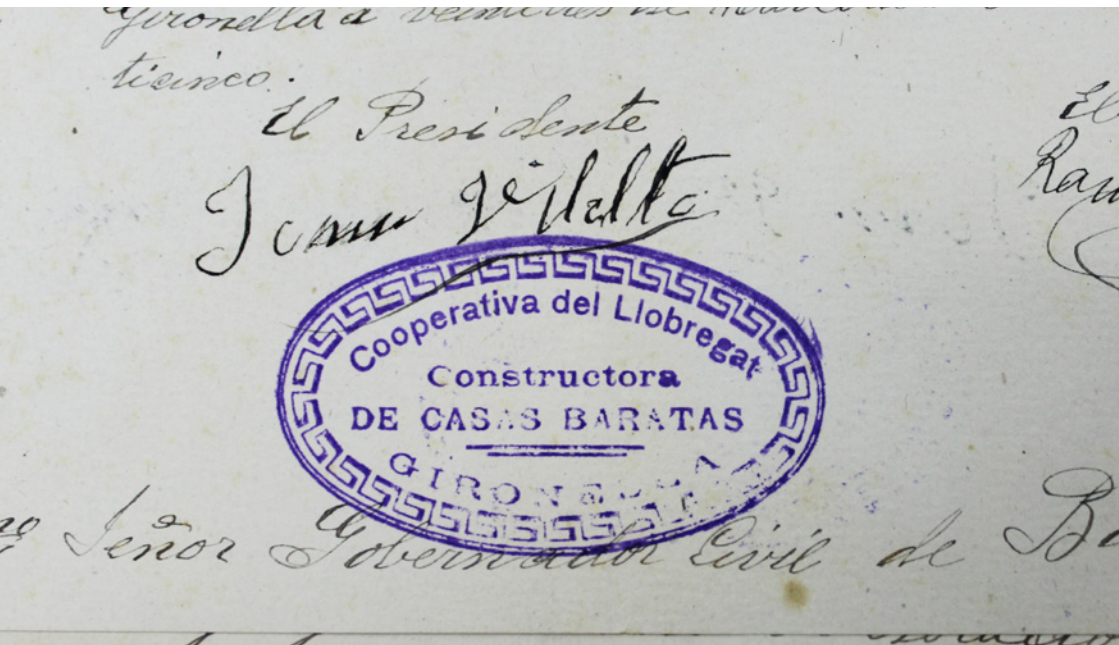 Gironella a veintitres de
ticinco.
El Presidente
El
Joan Vilalta
Ram
Cooperativa del Llobregat
Constructora
DE CASAS BARATAS
GIRONELLA
Señor Gobernador Civil de Ba